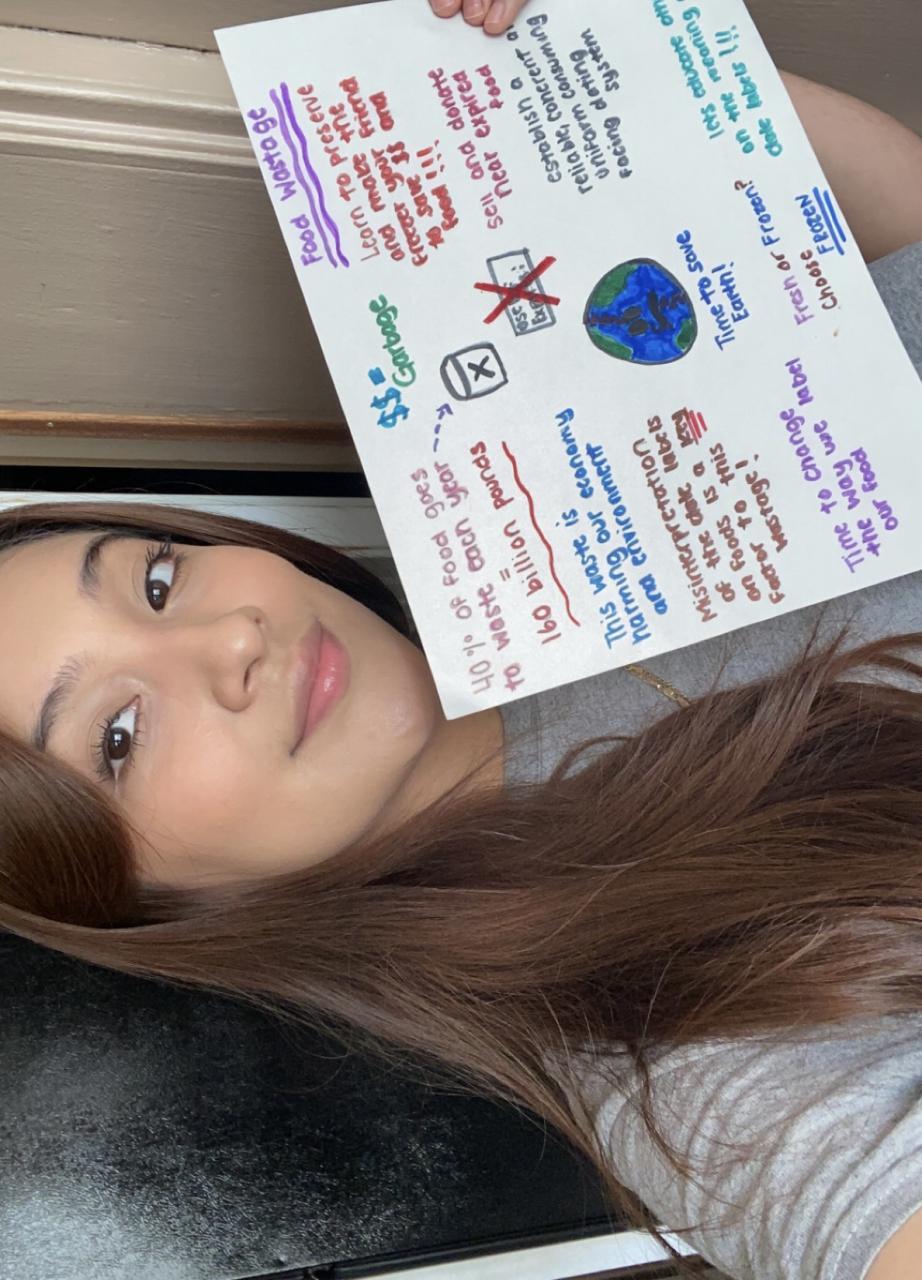 Food Wastage
$$ =
Garbage
Learn to preserve
and make the
Freezer your Friend
to save $$ and
Food !!!
40% OF Food goes
to waste each year
=
160 billion pounds
X
Expires:
Sell and donate
near expired
food
This waste is
harming our economy
and environment
establish a
reliable, concrent a
uniform consuming
facing dating
system
Time to save
Earth!
Misinterpretation
OF the date labels
on Foods is a key
Factor to this
Food wastage!
lets educate
on the meaning
date labels !!!
Time to change
the way we label
our Food
Fresh or Frozen?
Choose
FROZEN